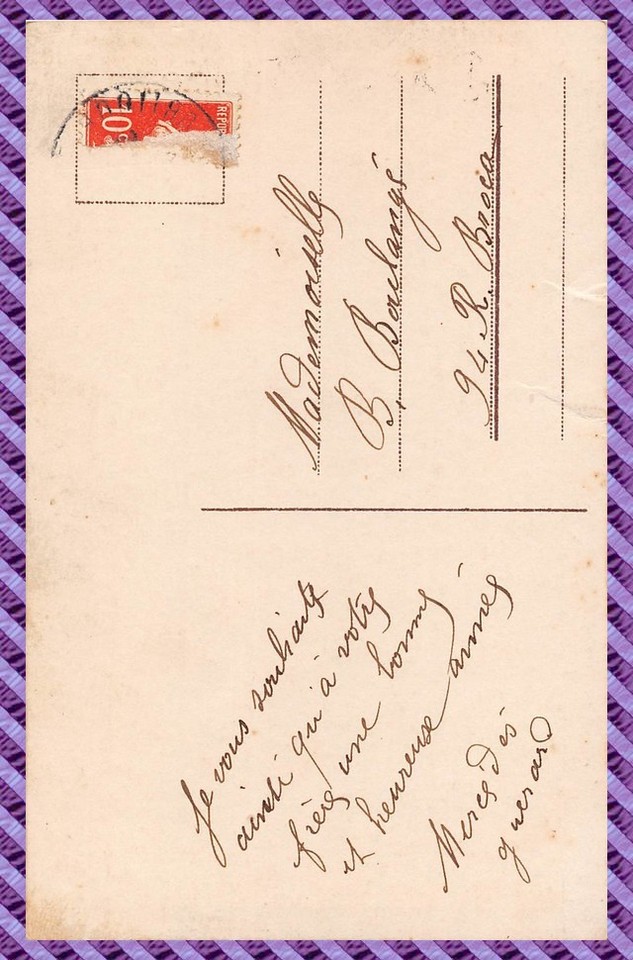 10
REPUB
Mademoiselle
B. Boulangé
94 R. Broca
Je vous souhaite
ainsi qu'à votre
frère une bonne
et heureuse année
Mercédès